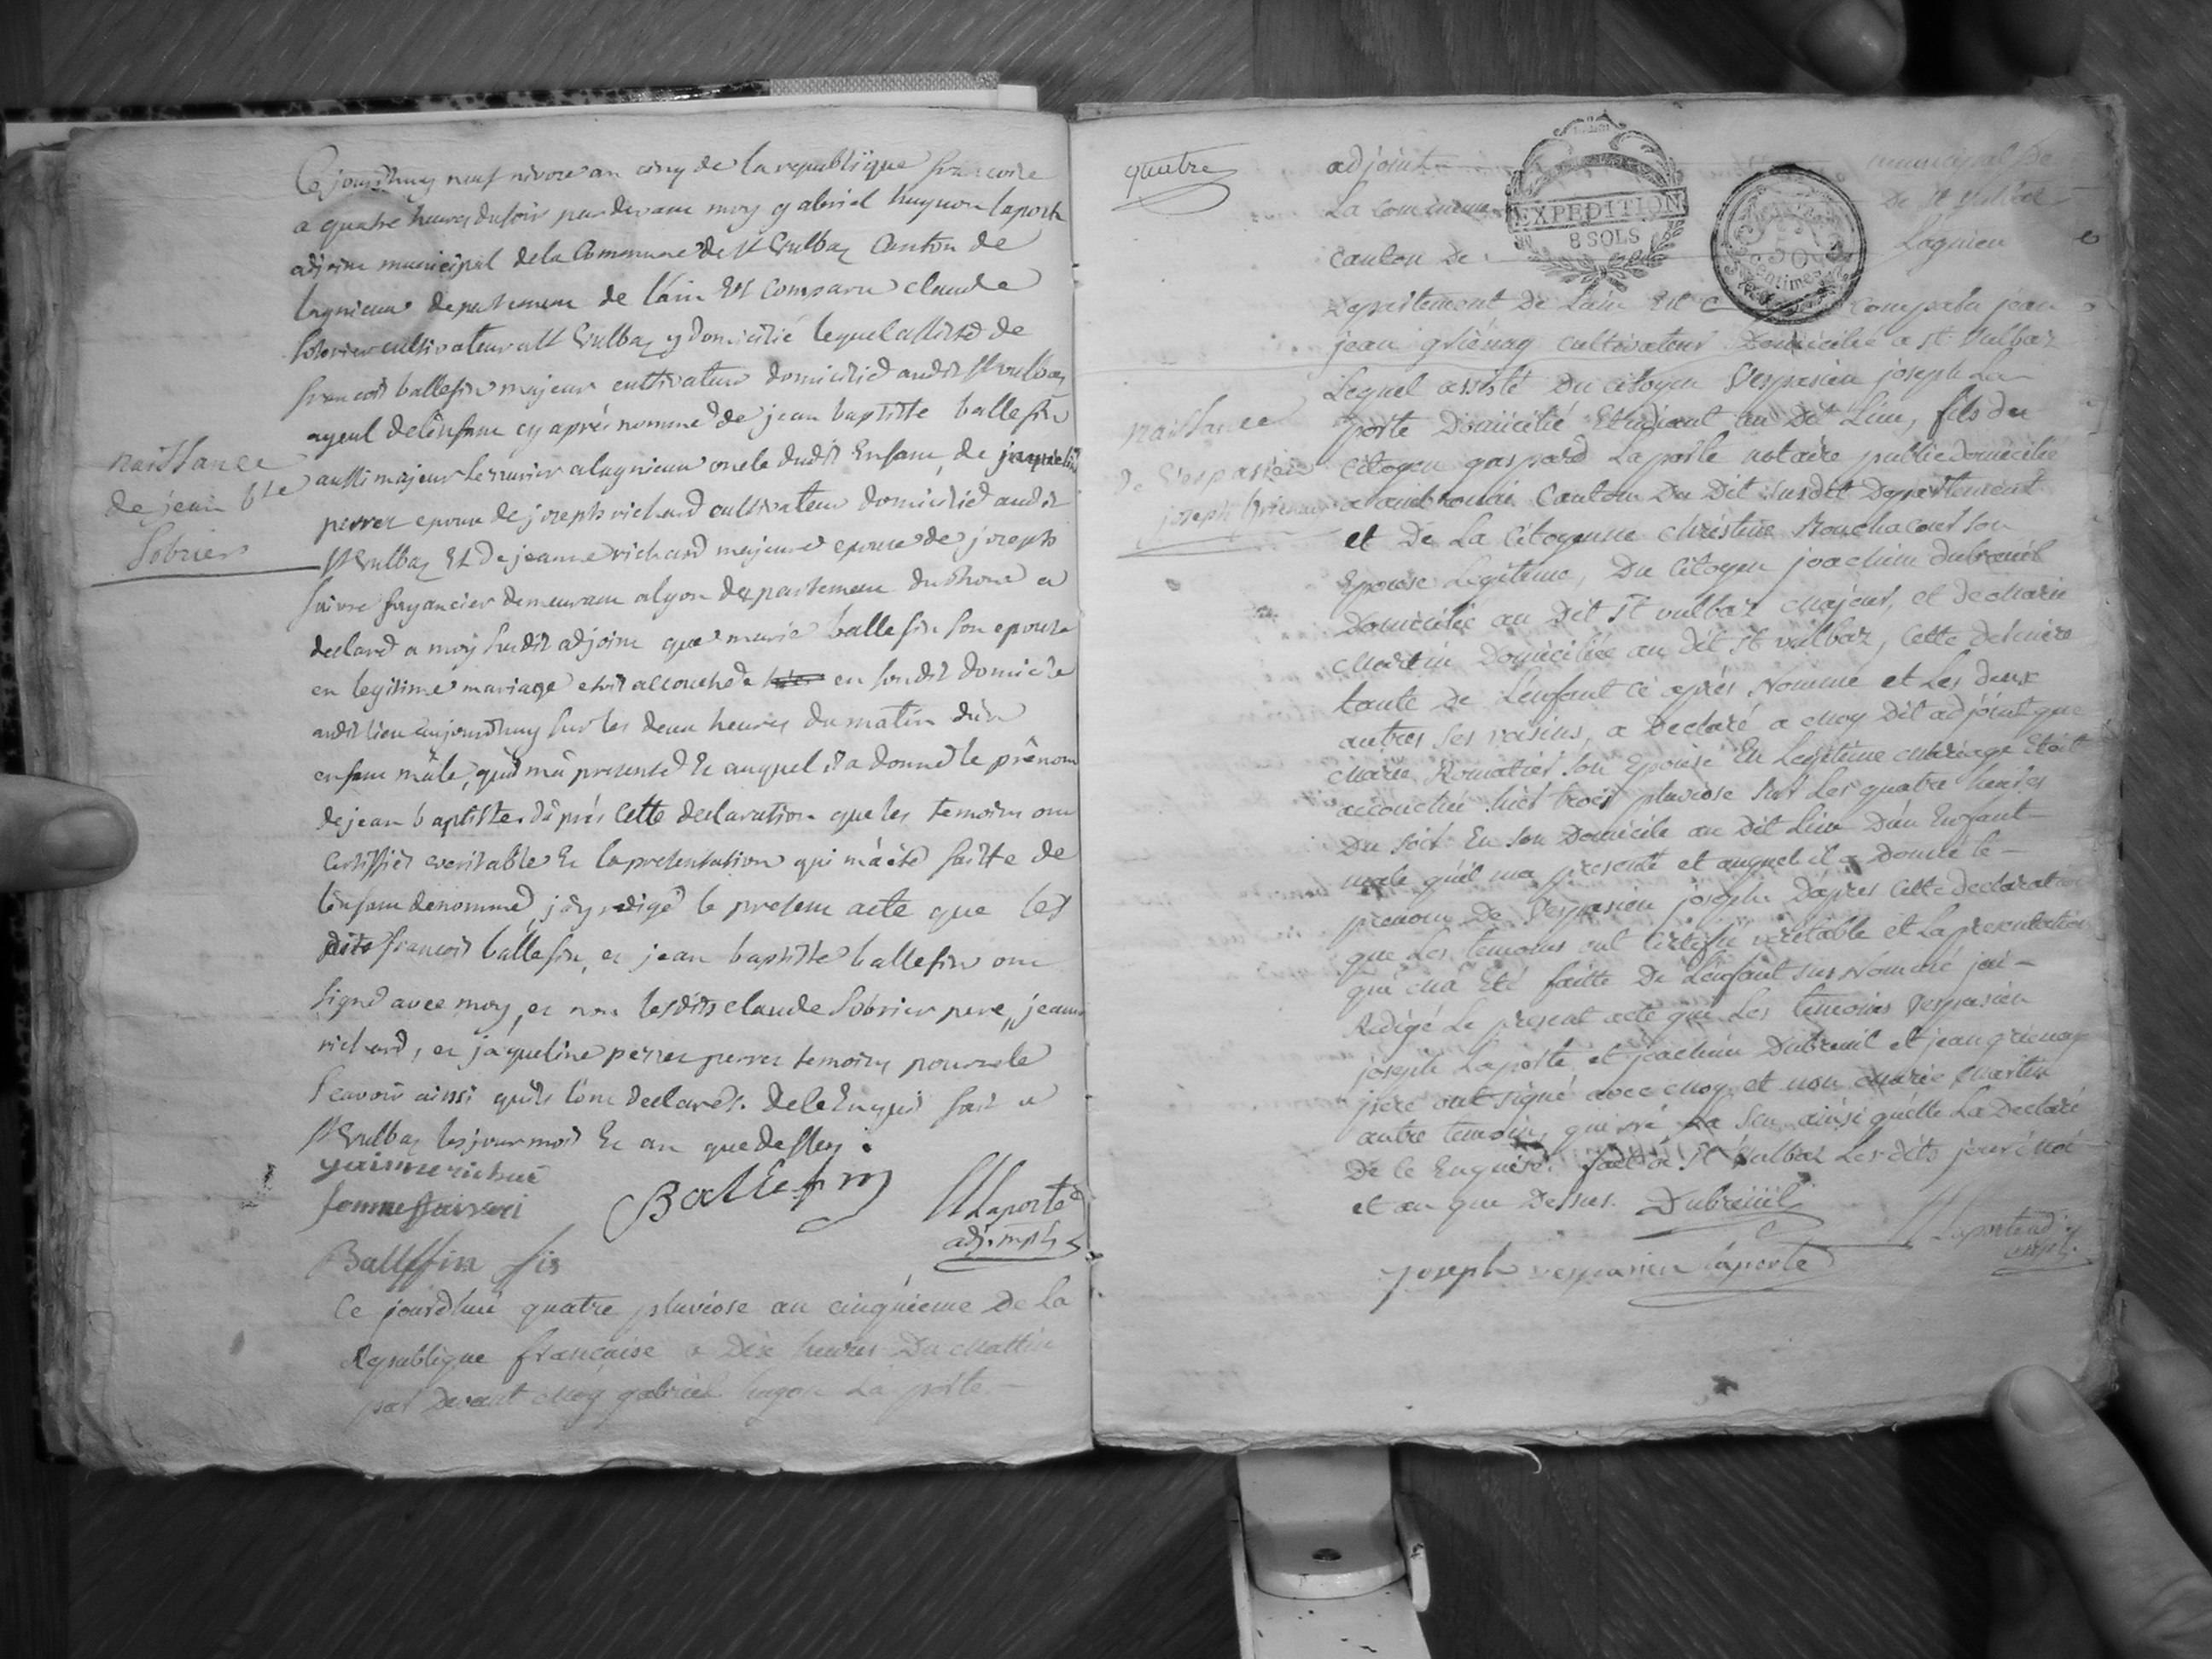 Cejourdhuy neuf nivose an cinq de la republique francoise
a quatre heures du soir par devant moy gabriel hugnon laporte
adjoint municipal de la Commune de St Vulbaz Canton de
lagnieux departement de l'ain Est Comparu claude
Sobrier cultivateur a St Vulbaz y domicilié lequel assisté de
francois ballefin majeur cultivateur domicilié audit St vulbaz
ayeul de l'enfant cy aprés nommé de jean baptiste ballefin
naissance
de jean bte
Sobrier
aussi majeur serrurier a lagnieux oncle dudit Enfant, de jaqueline
perret epouse de joseph richard cultivateur domicilié audit
St Vulbaz Et de jeanne richard majeure epouse de joseph
faivre fayancier demeurant a lyon departement du rhone a
declaré a moy susdit adjoint que marie ballefin son epouse
en legitime mariage etoit accouchée en son dit domicile
audit lieu aujourdhuy sur les deux heures du matin d'un
enfant mâle, qu'il m'a presenté Et auquel il a donné le prénom
de jean baptiste. d'aprés Cette declaration que les temoins ont
certiffiés veritable Et la presentation qui m'a été faitte de
l'enfant denommé, j'ay redigé le present acte que les
dits francois ballefin, et jean baptiste ballefin ont
signé avec moy, et non lesdits claude Sobrier pere, jeanne
richard, et jaqueline perret perret temoins pour ne le
scavoir ainsi quils l'ont declarés. de le Enquis fait a
St Vulbaz les jour mois Et an que dessus.
jainne richard
femme faivre
Ballefin
Laporte
adj. mpl
Balleffin fis
Ce jourdhui quatre pluviose an cinquieme De la
Republique française a Dix heures Du Mattin
par Devant Moy gabriel hugon La porte
quatre
adjoint municipal de
La commune De St Vulbaz
EXPEDITION
8 SOLS
50
centimes
Canton De Lagnieu
Departement De Lain Est Comparu jean
jean griénay cultivateur Domicilié a St Vulbaz
Lequel assisté Du citoyen Vespasien joseph La
porte Domicilié Etudiant au Dit Lieu, fils du
naissance
de Vespasien
joseph Grienay
Citoyen gaspard Laporte notaire public domicilié
a ambronai Canton Du Dit susdit Departement
et De La Citoyenne christine Bouchacourt son
Epouse Legitime, Du Citoyen joachim Dubreuil
Domicilié au Dit St vulbaz Majeur, et De Marie
Martin Domiciliée au Dit St vulbaz, Cette derniere
tante De L'enfant ci aprés Nommé et Les deux
autres ses voisins, a Declaré a Moy Dit adjoint que
Marie Romatier son Epouse En Legitime Mariage Etoit
accouchée hier trois pluviose sur Les quatre heures
Du Soir En son Domicile au Dit Lieu D'un Enfant
male qu'il ma presenté et auquel il a Donné le
prenom De Vespasien joseph D'apres Cette Declaration
que Les temoins ont certifié veritable et La presentation
qui m'a Eté faitte De L'enfant sus Nommé j'ai
Redigé Le present acte que Les temoins Vespasien
joseph Laporte et joachim Dubreuil et jean grienay
pere ont signé avec Moy et non Marie Martin
autre temoin, qui né La sçu ainsi quélle La Declaré
De le Enquise. fait a St Vulbaz Les dits jour moi
et an que Dessus. Dubreüil
Laporte adj
mpl.
joseph vespasien laporte